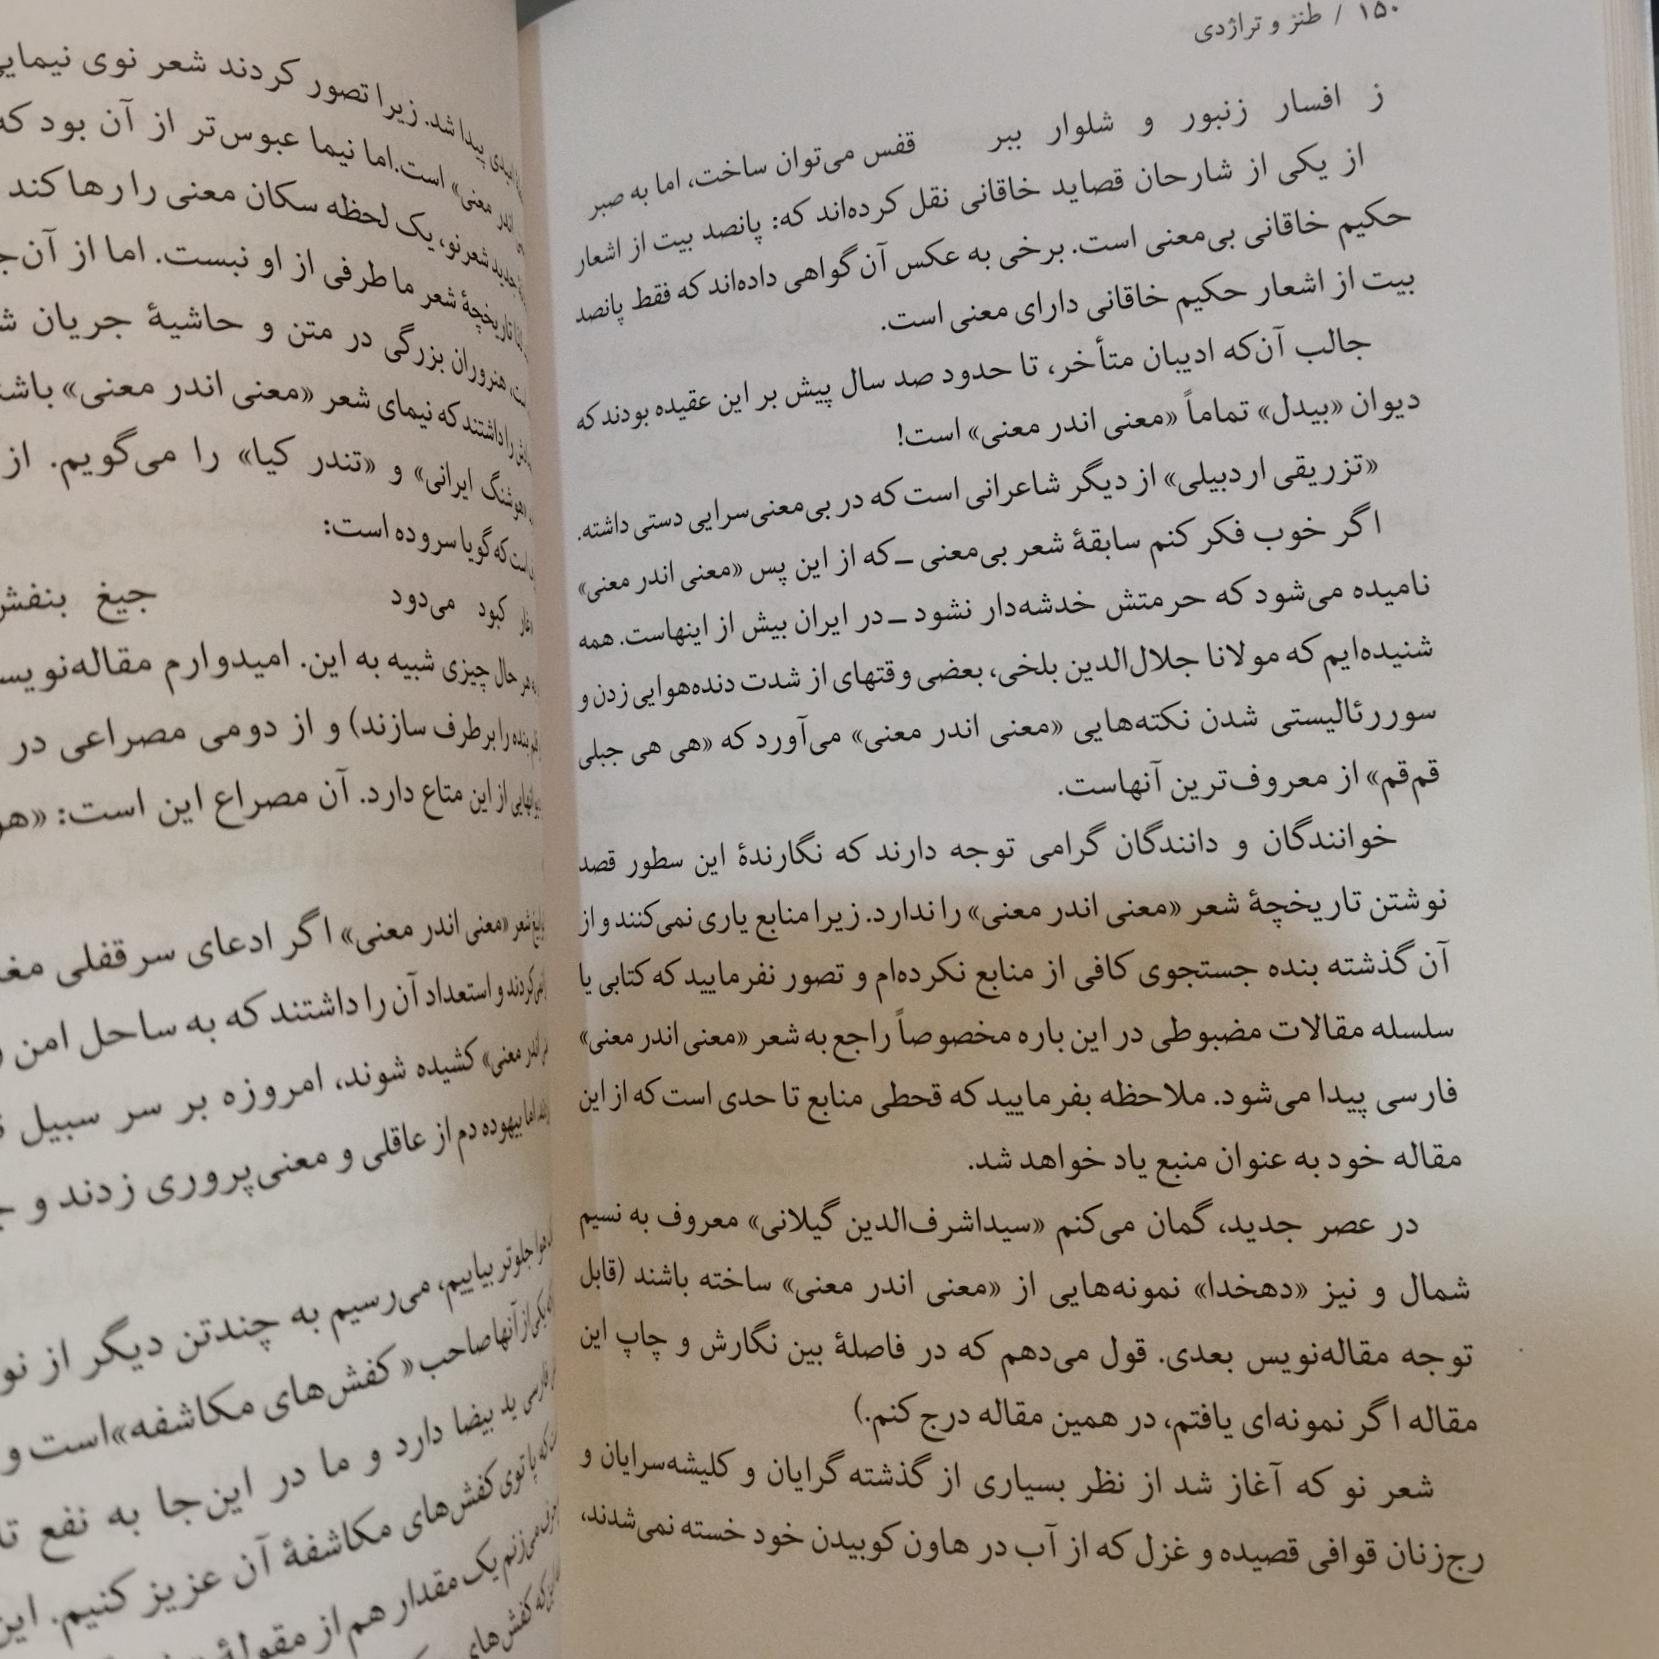 ۱۵۰ / طنز و تراژدی
ز افسار زنبور و شلوار ببر قفس می‌توان ساخت، اما به صبر
از یکی از شارحان قصاید خاقانی نقل کرده‌اند که: پانصد بیت از اشعار
حکیم خاقانی بی‌معنی است. برخی به عکس آن گواهی داده‌اند که فقط پانصد
بیت از اشعار حکیم خاقانی دارای معنی است.
جالب آن‌که ادیبان متأخر، تا حدود صد سال پیش بر این عقیده بودند که
دیوان «بیدل» تماماً «معنی اندر معنی» است!
«تزریقی اردبیلی» از دیگر شاعرانی است که در بی‌معنی‌سرایی دستی داشته.
اگر خوب فکر کنم سابقهٔ شعر بی‌معنی ـ که از این پس «معنی اندر معنی»
نامیده می‌شود که حرمتش خدشه‌دار نشود ـ در ایران بیش از اینهاست. همه
شنیده‌ایم که مولانا جلال‌الدین بلخی، بعضی وقتهای از شدت دنده‌هوایی زدن و
سوررئالیستی شدن نکته‌هایی «معنی اندر معنی» می‌آورد که «هی هی جبلی
قم‌قم» از معروف‌ترین آنهاست.
خوانندگان و دانندگان گرامی توجه دارند که نگارندهٔ این سطور قصد
نوشتن تاریخچهٔ شعر «معنی اندر معنی» را ندارد. زیرا منابع یاری نمی‌کنند و از
آن گذشته بنده جستجوی کافی از منابع نکرده‌ام و تصور نفرمایید که کتابی یا
سلسله مقالات مضبوطی در این باره مخصوصاً راجع به شعر «معنی اندر معنی»
فارسی پیدا می‌شود. ملاحظه بفرمایید که قحطی منابع تا حدی است که از این
مقاله خود به عنوان منبع یاد خواهد شد.
در عصر جدید، گمان می‌کنم «سیداشرف‌الدین گیلانی» معروف به نسیم
شمال و نیز «دهخدا» نمونه‌هایی از «معنی اندر معنی» ساخته باشند (قابل
توجه مقاله‌نویس بعدی. قول می‌دهم که در فاصلهٔ بین نگارش و چاپ این
مقاله اگر نمونه‌ای یافتم، در همین مقاله درج کنم.)
شعر نو که آغاز شد از نظر بسیاری از گذشته گرایان و کلیشه‌سرایان و
رج‌زنان قوافی قصیده و غزل که از آب در هاون کوبیدن خود خسته نمی‌شدند،
پیدا شد. زیرا تصور کردند شعر نوی
اندر معنی» است. اما نیما عبوس‌تر از آن بود که
شعر نو، یک لحظه سکان معنی را رها کند
تاریخچهٔ شعر ما طرفی از او نبست. اما از
هنروران بزرگی در متن و حاشیهٔ جریان
را داشتند که نیمای شعر «معنی اندر معنی»
«هوشنگ ایرانی» و «تندر کیا» را می‌گویم. از
است که گویا سروده است:
غار کبود می‌دود جیغ بنفش
حال چیزی شبیه به این. امیدوارم
بنده را برطرف سازند) و از دومی مصراعی در
از این متاع دارد. آن مصراع این است:
شعر «معنی اندر معنی» اگر ادعای سرقفلی
و استعداد آن را داشتند که به ساحل امن
اندر معنی» کشیده شوند، امروزه بر سر سبیل
اما بیهوده دم از عاقلی و معنی‌پروری زدند و
جلوتر بیاییم، می‌رسیم به چندتن دیگر از
یکی از آنها صاحب «کفش‌های مکاشفه» است و
فارسی ید بیضا دارد و ما در این‌جا به نفع
که پا توی کفش‌های مکاشفهٔ آن عزیز کنیم.
می‌زنم یک مقدار هم از مقولهٔ
که کفش‌های